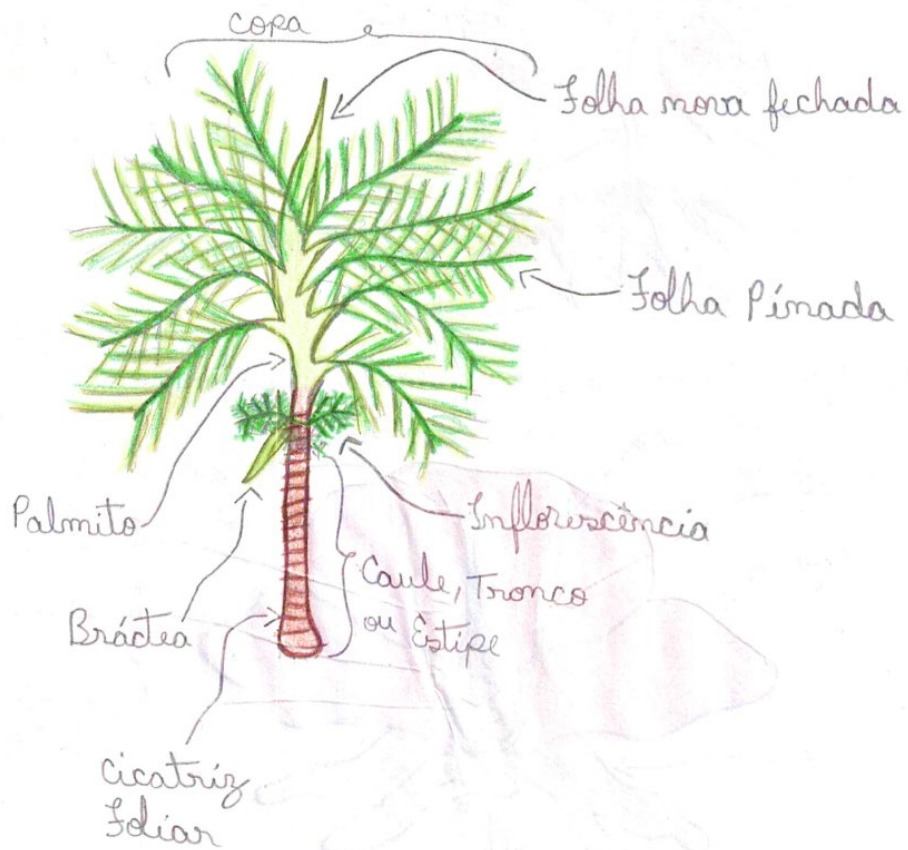 copa
Folha nova fechada
Folha Pinada
Palmito
Inflorescência
Caule, Tronco
ou Estipe
Bráctea
Cicatríz
Foliar